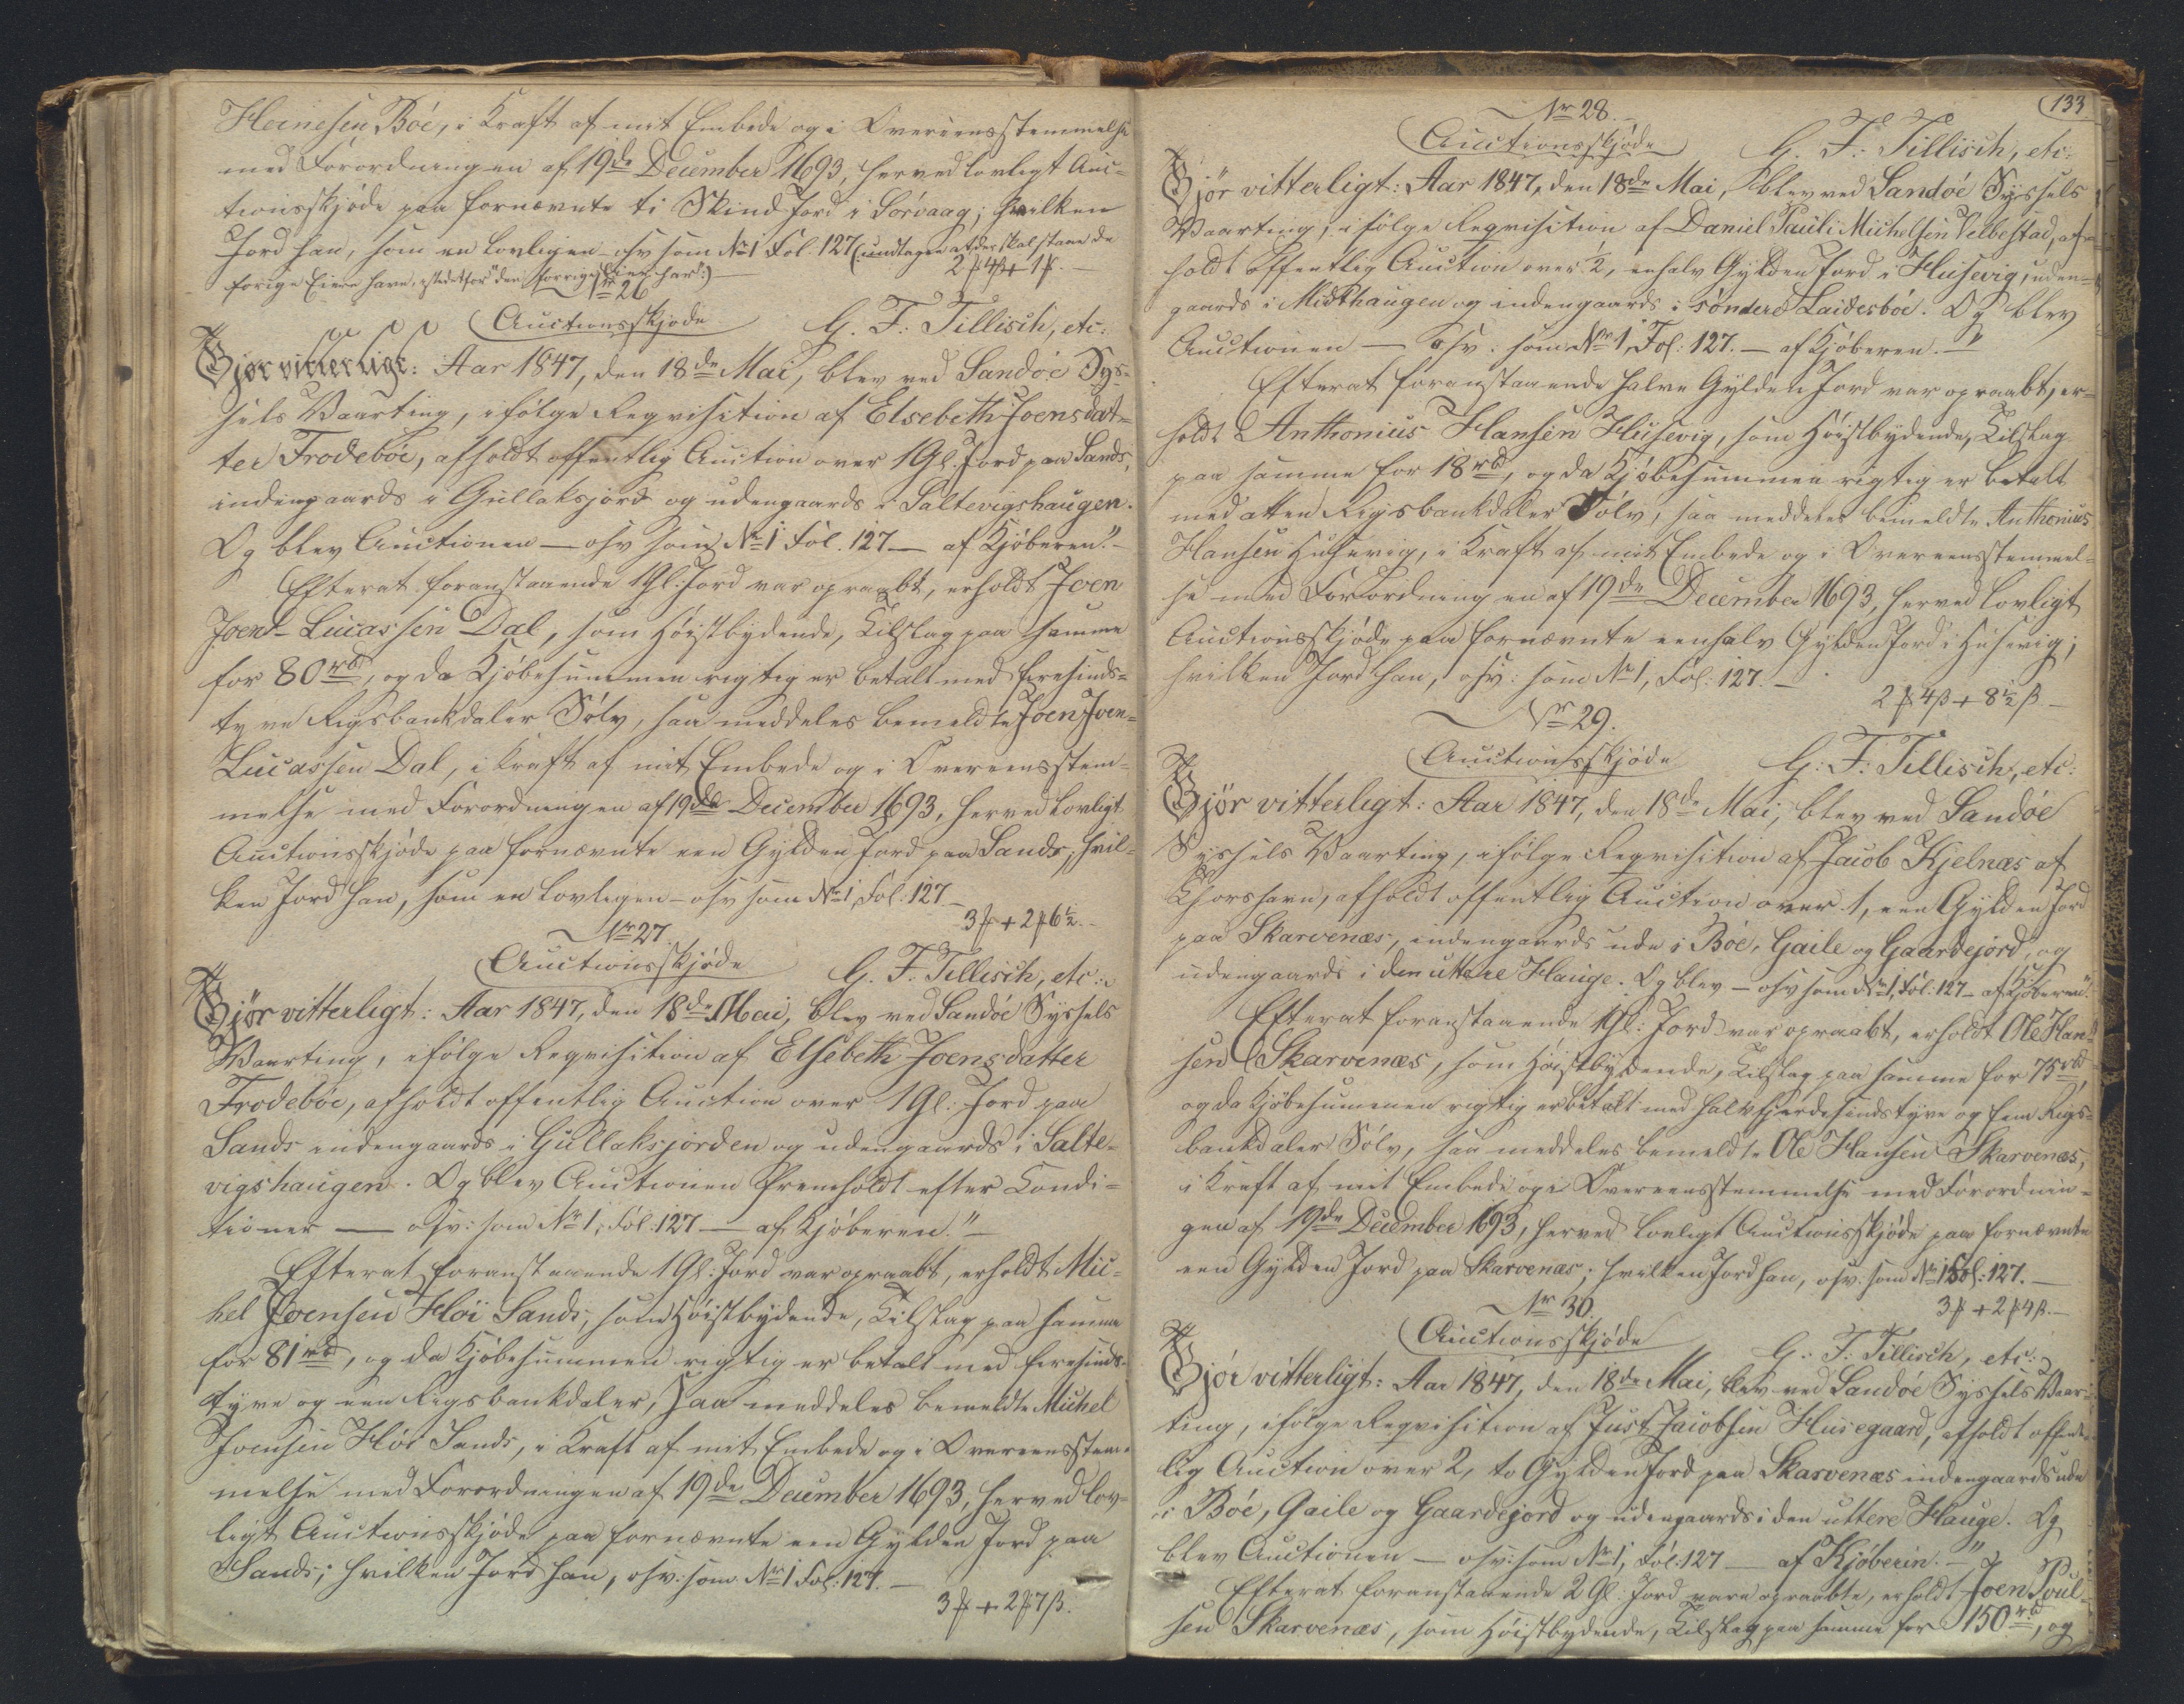 Heinesen Böe, i Kraft af mit Embede og i Overeensstemmelse
med Forordningen af 19de December 1693, herved lovligt Auc-
tionsskjöde paa fornævnte ti Skind Jord i Sorvaag; hvilken
Jord han, som en lovligen - osv som No 1 Fol. 127 (: undtagen at der skal staae de
forige Eiere have, istedetfor "den forrige Eier har":) 2 f 4 ß + 1 f. —
Nr 26
Auctionsskjøde
G. F. Tillisch, etc:
Gjør vitterligt: Aar 1847, den 18de Mai, blev ved Sandöe Sys-
sels Vaarting, ifølge Reqvisition af Elsebeth Joensdat-
ter Trødebøe, afholdt offentlig Auction over 1 Gl. Jord paa Sands,
indengaards i Gullaksjord og udengaards i Saltevigshaugen.
Og blev Auctionen — osv som No 1 Fol. 127 — af Kjøberen." -
Efterat foranstaaende 1 Gl: Jord var opraabt, erholdt Joen
Joen- Lucassen Dal, som Höistbydende, Tilslag paa samme
for 80 rbd, og da Kjøbesummen rigtig er betalt med firesinds-
tyve Rigsbankdaler Sølv, saa meddeles bemeldte Joen Joen-
Lucassen Dal, i Kraft af mit Embede og i Overeensstem-
melse med Forordningen af 19de December 1693, herved lovligt
Auctionsskjøde paa fornævnte een Gylden Jord paa Sands; hvil-
ken Jord han, som en lovligen - osv som No 1, Fol: 127 —
3 f + 2 f 6½. -
Nr 27.
Auctionsskjøde
G. F. Tillisch, etc:
Gjör vitterligt: Aar 1847, den 18de Mai, blev ved Sandöe Syssels
Vaarting, ifölge Reqvisition af Elsebeth Joensdatter
Trodebøe, afholdt offentlig Auction over 1 Gl: Jord paa
Sands indengaards i Gullaksjorden og udengaards i Salte-
vigshaugen. Og blev Auctionen fremholdt efter Condi-
tioner — osv: som No 1, Fol: 127 — af Kjøberen." —
Efterat foranstaaende 1 Gl: Jord var opraabt, erholdt Mic-
hel Joensen Høi Sands, som Höistbydende, Tilslag paa samme
for 81 rbd, og da Kjøbesummen rigtig er betalt med firesinds-
tyve og een Rigsbankdaler, saa meddeles bemeldte Michel
Joensen Höi Sands, i Kraft af mit Embede og i Overeensstem-
melse med Forordningen af 19de December 1693, herved lov-
ligt Auctionsskjøde paa fornævnte een Gylden Jord paa
Sands; hvilken Jord han, osv: som No 1 Fol: 127. —
3 f + 2 f 7 ß.
133
Nr 28.
Auctionsskjøde
G. F: Tillisch, etc:
Gjör vitterligt: Aar 1847, den 18de Mai, blev ved Sandöe Syssels
Vaarting, ifölge Reqvisition af Daniel Pauli Michelsen Velbestad, af-
holdt offentlig Auction over ½, en halv Gylden Jord i Husevig, uden-
gaards i Midthaugen og indengaards i söndere Laidesböe. Og blev
Auctionen — osv. som No 1, Fol: 127. — af Kjøberen." —
Efterat foranstaaende halve Gylden Jord var opraabt, er-
holdt Anthonius Hansen Husevig, som Höistbydende, Tilslag
paa samme for 18 rbd, og da Kjøbesummen rigtig er betalt
med atten Rigsbankdaler Sölv, saa meddeles bemeldte Anthonius
Hansen Husevig, i Kraft af mit Embede og i Overeensstemmel-
se med Forordningen af 19de December 1693, herved lovligt
Auctionsskjøde paa fornævnte een halv Gylden Jord i Husevig;
hvilken Jord han, osv: som No 1, Fol: 127. —
2 f 4 ß + 8½ ß —
Nr 29.
Auctionsskjøde
G: F: Tillisch, etc:
Gjör vitterligt: Aar 1847, den 18de Mai, blev ved Sandöe
Syssels Vaarting, ifölge Reqvisition af Jacob Kjelnæs af
Thorshavn, afholdt offentlig Auction over 1, een Gylden Jord
paa Skarvenæs, indengaards ude i Böe, Gaile og Gaardejord, og
udengaards i den uttere Hauge. Og blev — osv som No 1, Fol: 127 — af Kjøberen."
Efterat foranstaaende 1 Gl: Jord var opraabt, erholdt Ole Han-
sen Skarvenæs, som Höistbydende, Tilslag paa samme for 75 rbd,
og da Kjøbesummen rigtig er betalt med halvfjerdesindstyve og fem Rigs-
bankdaler Sölv, saa meddeles bemeldte Ole Hansen Skarvenæs,
i Kraft af mit Embede og i Overeensstemmelse med Forordnin-
gen af 19de December 1693, herved lovligt Auctionsskjøde paa fornævnte
een Gylden Jord paa Skarvenæs; hvilken Jord han, osv: som No 1 Fol: 127. —
3 f + 2 f 4 ß. —
Nr 30.
Auctionsskjøde
G: F: Tillisch, etc:
Gjör vitterligt: Aar 1847, den 18de Mai, blev ved Sandöe Syssels Vaar-
ting, ifølge Reqvisition af Just Jacobsen Husegaard, afholdt offent-
lig Auction over 2, to Gylden Jord paa Skarvenæs indengaards ude
i Böe, Gaile og Gaardejord og udengaards i den uttere Hauge. Og
blev Auctionen — osv: som No 1, Fol: 127 — af Kjøberen. —"
Efterat foranstaaende 2 Gl: Jord vare opraabte, erholdt Joen Poul-
sen Skarvenæs, som Höistbydende, Tilslag paa samme for 150 rbd, og